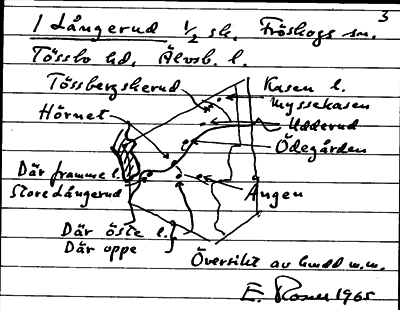 3
1 Långerud 1/2 sk. Fröskogs sn.
Tössbo hd. Älvsb. l.
Tössbergskerud
Kasen l.
Myssekasen
Hörnet
Udderud
Ödegården
Där framme l.
Store Långerud
Ängen
Där öste l.
Där oppe
Översikt av m.m.
E. 1965